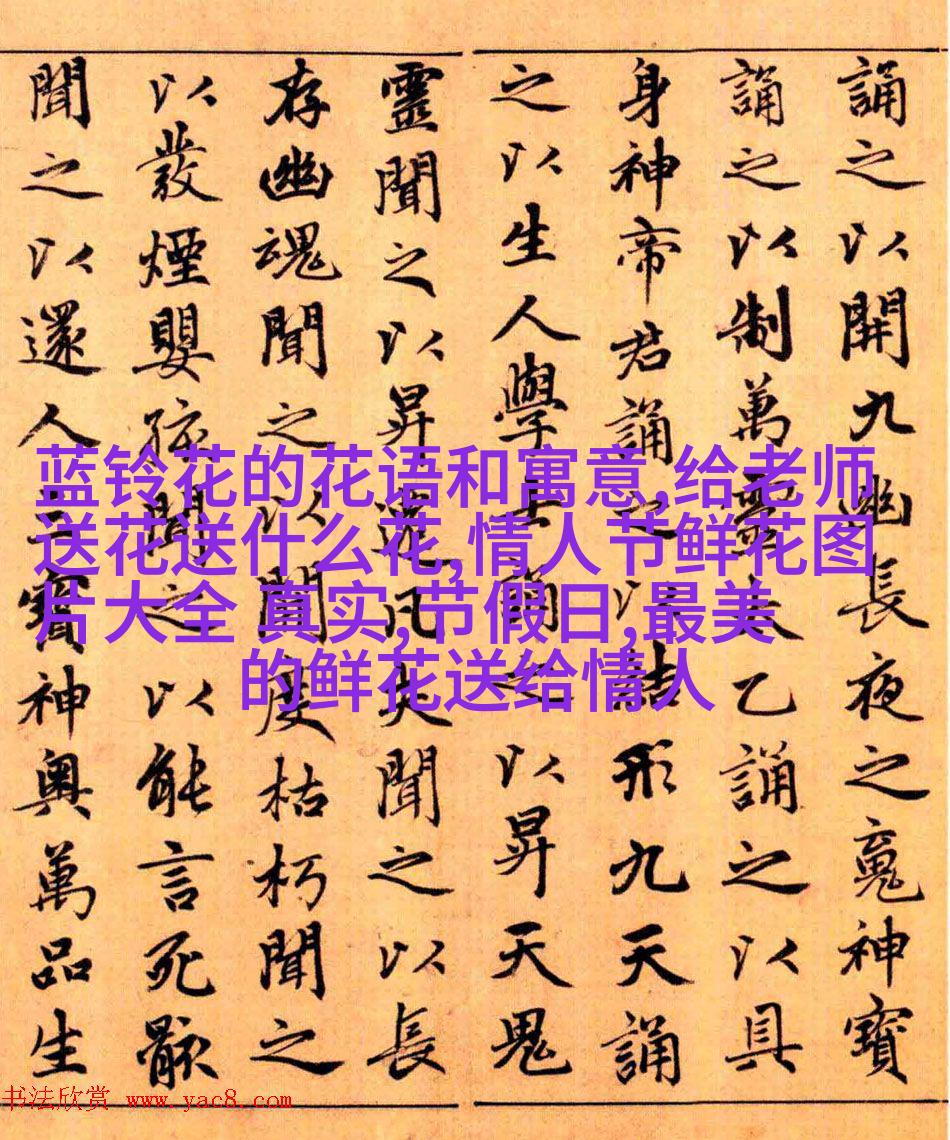 誦之以開九幽長夜之䰟神寶
誦之以制萬靈太乙誦之以具
身神帝君誦之以結形九天誦
之以生人學士誦之以昇天鬼
靈聞之以昇遷凡夫聞之以長
存幽魂聞之以開度枯朽聞之
以發煙嬰孩聞之以能言死骸
聞之以還人三寶神奥萬品生
蓝铃花的花语和寓意,给老师
送花送什么花,情人节鲜花图
片大全 真实,节假日,最美
的鲜花送给情人
书法欣赏 www.yac8.com